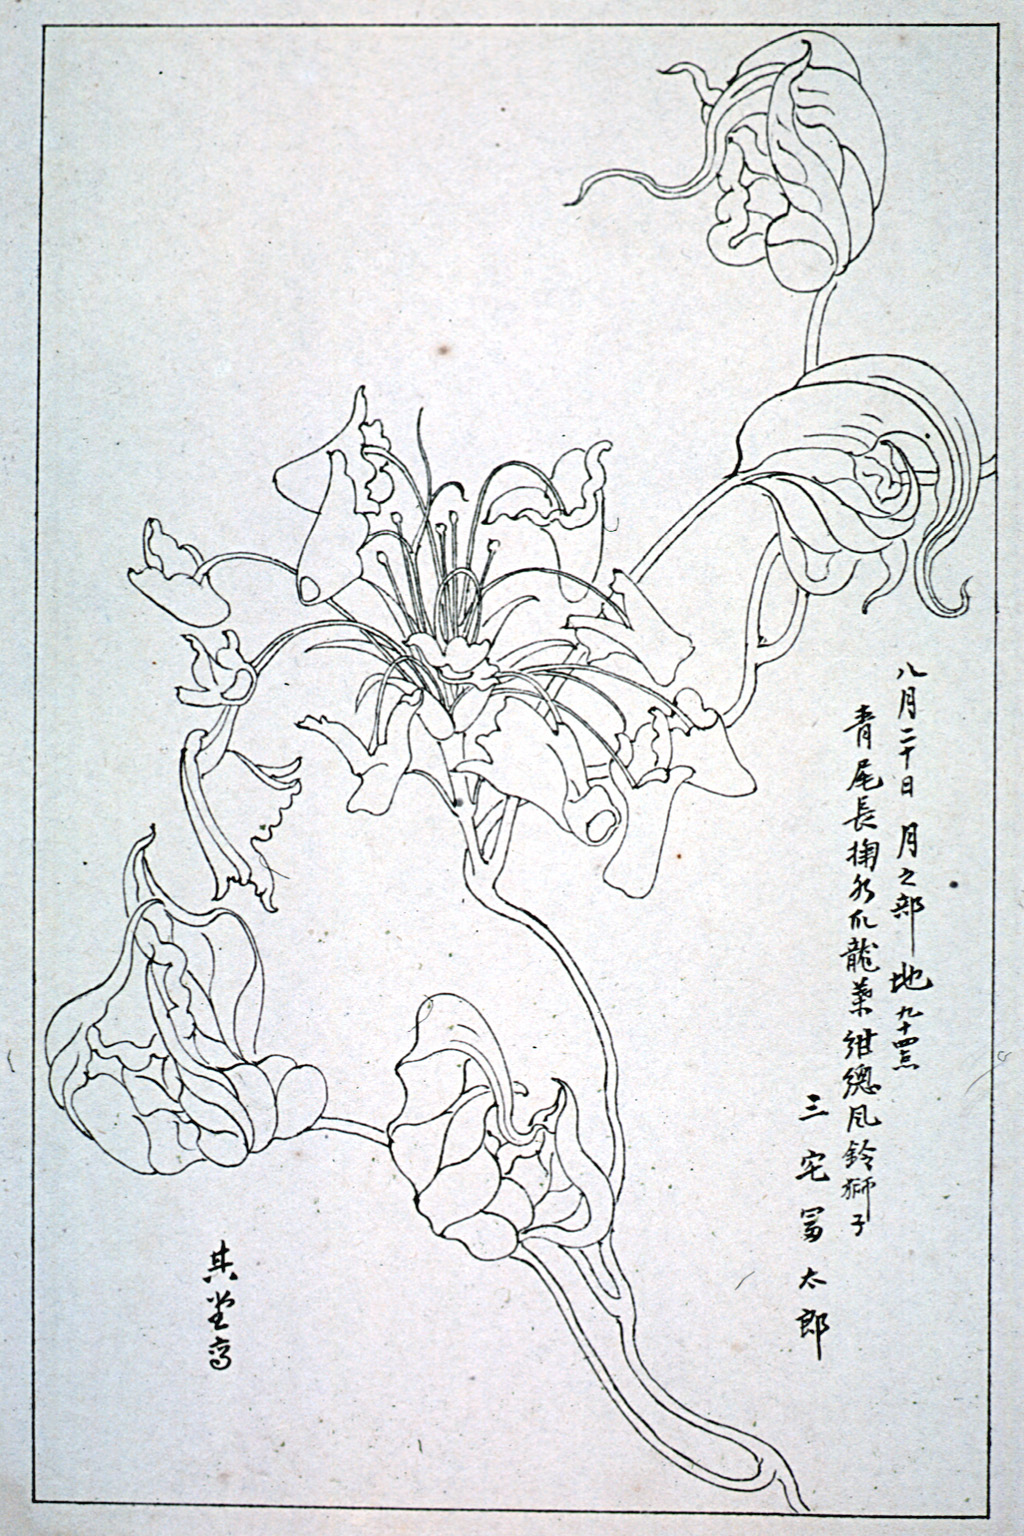 八月二十日 月之部 地 九十四点
青尾長掬水爪龍葉紺總風鈴獅子
三宅冨太郎
其堂写